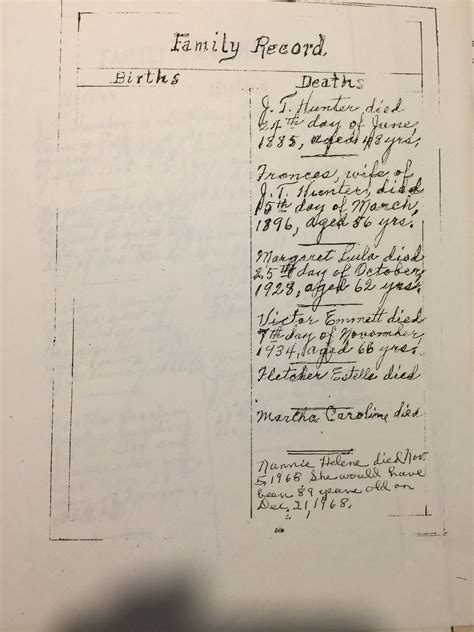 Family Record
Births
Deaths
J. T. Hunter died
24th day of June,
1885, aged 48 yrs.
Frances, wife of
J. T. Hunter, died
15th day of March,
1896, aged 56 yrs.
Margaret Lula died
25th day of October
1928, aged 62 yrs.
Victor Emmett died
7th day of November
1934, aged 66 yrs.
Fletcher Estelle died
Martha Caroline died
Nannie Helene died Nov.
5, 1968 She would have
been 89 years old on
Dec. 21, 1968.